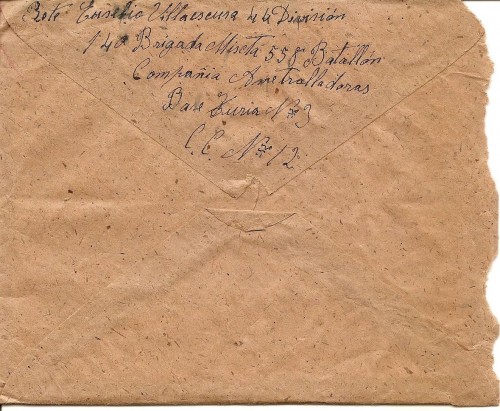 Rete Eusebio Villaescusa 44 División
140 Brigada Mixta 558 Batallón
Compañia Ametralladoras
Base Turia Nº 3
C.C. Nº 12